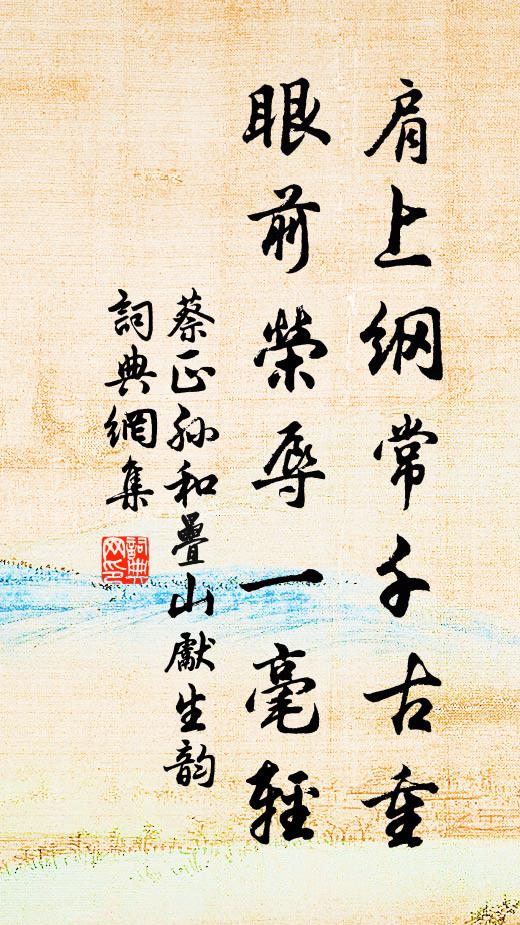 肩上纲常千古重
眼前榮辱一毫輕
蔡正孫和疊山獻生韵
詞典網集
詞典网印